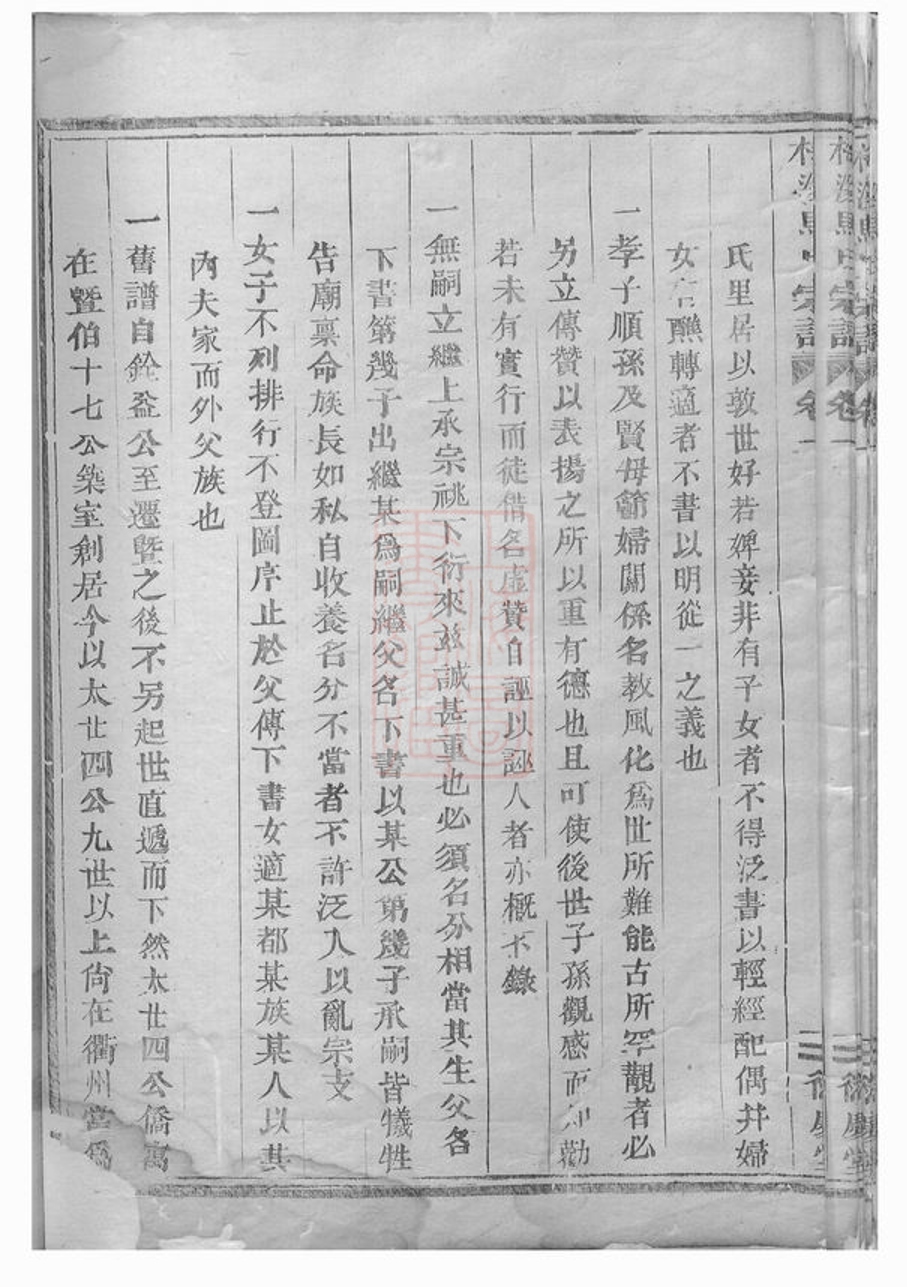 氏里居以敦世好若婢妾非有子女者不得泛書以輕經配偶并婦
女有醮轉適者不書以明從一之義也
一孝子順孫及賢母節婦關係名教風化爲世所難能古所罕觀者必
另立傳贊以表揚之所以重有德也且可使後世子孫觀感而知勸
若未有實行而徒借名虛贊自誣以誣人者亦概不錄
一無嗣立繼上承宗祧下衍來玆誠甚重也必須名分相當其生父名
下書第幾子出繼某爲嗣繼父名下書以某公第幾子承嗣皆犧牲
告廟稟命族長如私自收養名分不當者不許泛入以亂宗支
一女子不列排行不登圖序止於父傳下書女適某都某族某人以其
內夫家而外父族也
一舊譜自銓盉公至遷暨之後不另起世直遞而下然太廿四公僑寓
在暨伯十七公築室創居今以太廿四公九世以上尙在衢州當爲
宗譜 卷一
二